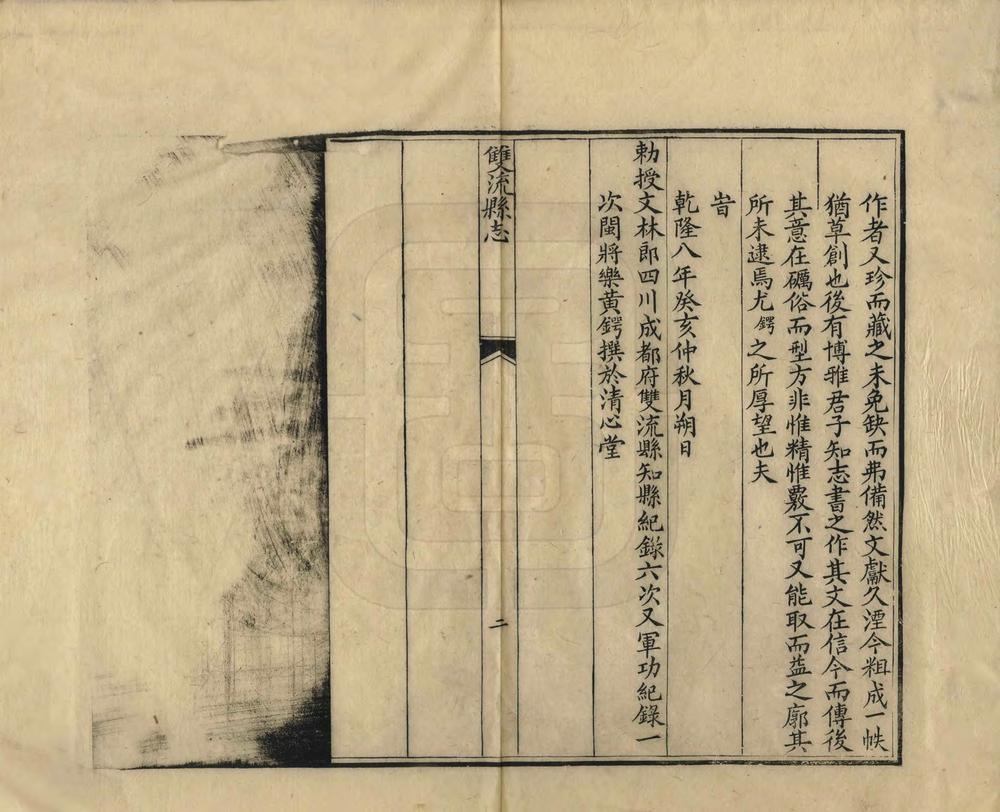 作者又珍而藏之未免缺而弗備然文獻久湮今粗成一帙
猶草創也後有博雅君子知志書之作其文在信今而傳後
其意在礪俗而型方非惟精惟覈不可又能取而益之廓其
所未逮焉尤鍔之所厚望也夫
旹
乾隆八年癸亥仲秋月朔日
勅授文林郎四川成都府雙流縣知縣紀錄六次又軍功紀錄一
次閩將樂黃鍔撰於清心堂
雙流縣志
二